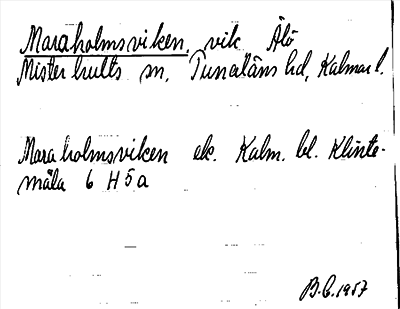 Maraholmsviken, vik Älö
Misterhults sn, Tunaläns hd, Kalmar l.
Maraholmsviken ek. Kalm. bl. Klinte-
måla 6 H 5 a
B.C. 1957